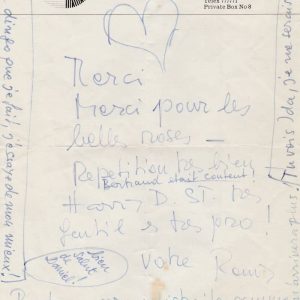 Telex 77777
Private Box No 8
Merci
Merci pour les
belles roses —
Repetition très bien
Bertrand était content!
Harry D St. très
gentil et très pro!
Votre
bien
de
salut
Daniel!
dingo que je fait, j'essaye de mon mieux!
Tu vois Ida, je ne serai